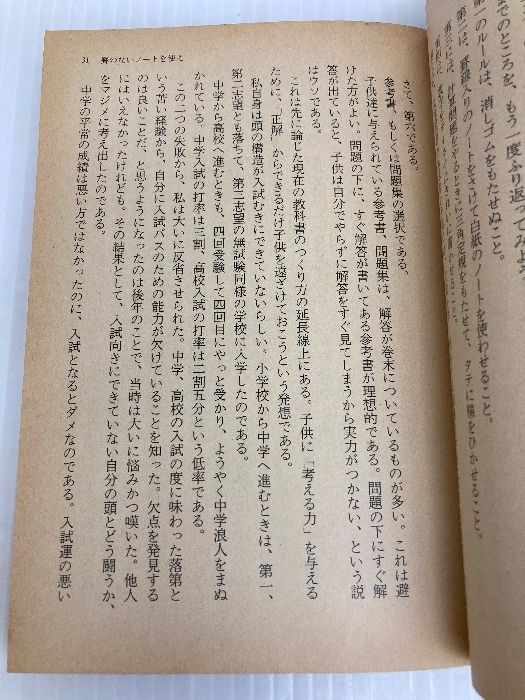 までのところを、もう一度ふり返ってみよ
一のルールは、消しゴムをもたせぬこと。
第二は、罫線入りのノートをさけて白紙のノートを使わせること。
タテに線をひかせること。
31 罫のないノートを使え
さて、第六である。
参考書、もしくは問題集の選択である。
子供達に与えられている参考書、問題集は、解答が巻末についているものが多い。これは避
けた方がよい。問題の下に、すぐ解答が書いてある参考書が理想的である。問題の下にすぐ解
答が出ていると、子供は自分でやらずに解答をすぐ見てしまうから実力がつかない、という説
はウソである。
これは先に論じた現在の教科書のつくり方の延長線上にある。子供に「考える力」を与える
ために、「正解」からできるだけ子供を遠ざけておこうという発想である。
私自身は頭の構造が入試むきにできていないらしい。小学校から中学へ進むときは、第一、
第二志望とも落ちて、第三志望の無試験同様の学校に入学したのである。
中学から高校へ進むときも、四回受験して四回目にやっと受かり、ようやく中学浪人をまぬ
かれている。中学入試の打率は三割、高校入試の打率は二割五分という低率である。
この二つの失敗から、私は大いに反省させられた。中学、高校の入試の度に味わった落第と
いう苦い経験から、自分に入試パスのための能力が欠けていることを知った。欠点を発見する
のは良いことだ、と思うようになったのは後年のことで、当時は大いに悩みかつ嘆いた。他人
にはいえなかったけれども、その結果として、入試向きにできていない自分の頭とどう闘うか、
をマジメに考え出したのである。
中学の平常の成績は悪い方ではなかったのに、入試となるとダメなのである。入試運の悪い